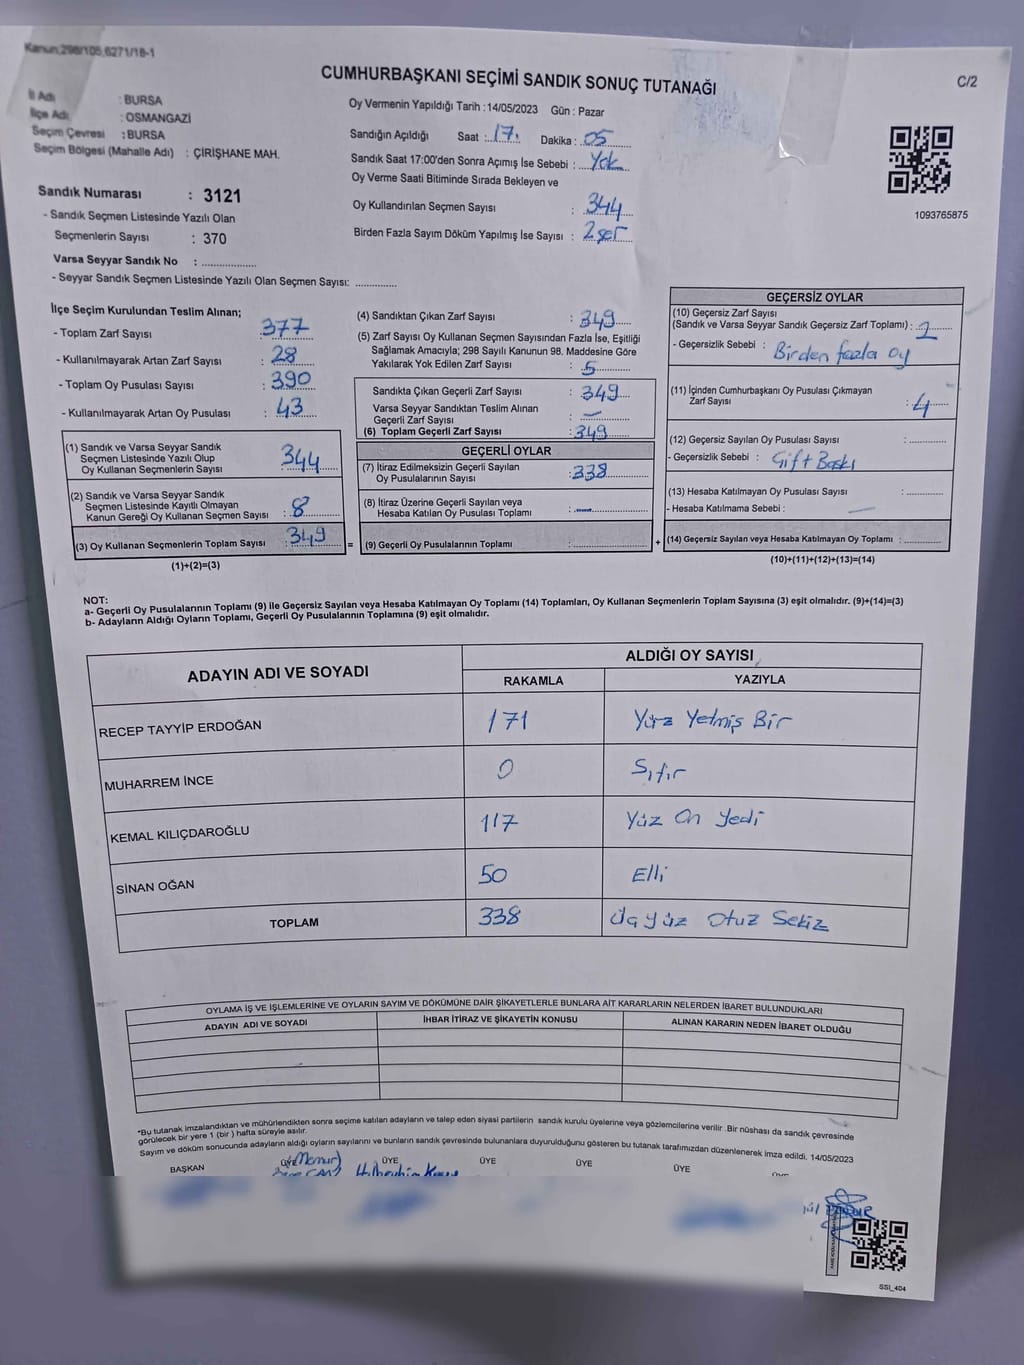 Kanun;298/105,6271/18-1
CUMHURBAŞKANI SEÇİMİ SANDIK SONUÇ TUTANAĞI
C/2
İl Adı : BURSA
İlçe Adı : OSMANGAZİ
Seçim Çevresi : BURSA
Seçim Bölgesi (Mahalle Adı) : ÇİRİŞHANE MAH.
Oy Vermenin Yapıldığı Tarih : 14/05/2023 Gün : Pazar
Sandığın Açıldığı Saat : 17. Dakika : 05
Sandık Saat 17:00'den Sonra Açımış İse Sebebi : Yok
Oy Verme Saati Bitiminde Sırada Bekleyen ve
Oy Kullandırılan Seçmen Sayısı : 344
Birden Fazla Sayım Döküm Yapılmış İse Sayısı : 2
1093765875
Sandık Numarası : 3121
- Sandık Seçmen Listesinde Yazılı Olan
Seçmenlerin Sayısı : 370
Varsa Seyyar Sandık No : ................
- Seyyar Sandık Seçmen Listesinde Yazılı Olan Seçmen Sayısı: ............
İlçe Seçim Kurulundan Teslim Alınan;
- Toplam Zarf Sayısı : 377
- Kullanılmayarak Artan Zarf Sayısı : 28
- Toplam Oy Pusulası Sayısı : 390
- Kullanılmayarak Artan Oy Pusulası : 43
(1) Sandık ve Varsa Seyyar Sandık
Seçmen Listesinde Yazılı Olup
Oy Kullanan Seçmenlerin Sayısı : 344
(2) Sandık ve Varsa Seyyar Sandık
Seçmen Listesinde Kayıtlı Olmayan
Kanun Gereği Oy Kullanan Seçmen Sayısı : 8
(3) Oy Kullanan Seçmenlerin Toplam Sayısı : 349
(1)+(2)=(3)
(4) Sandıktan Çıkan Zarf Sayısı : 349
(5) Zarf Sayısı Oy Kullanan Seçmen Sayısından Fazla İse, Eşitliği
Sağlamak Amacıyla; 298 Sayılı Kanunun 98. Maddesine Göre
Yakılarak Yok Edilen Zarf Sayısı : 5
Sandıkta Çıkan Geçerli Zarf Sayısı : 349
Varsa Seyyar Sandıktan Teslim Alınan
Geçerli Zarf Sayısı : —
(6) Toplam Geçerli Zarf Sayısı : 349
GEÇERLİ OYLAR
(7) İtiraz Edilmeksizin Geçerli Sayılan
Oy Pusulalarının Sayısı : 338
(8) İtiraz Üzerine Geçerli Sayılan veya
Hesaba Katılan Oy Pusulası Toplamı : —
= (9) Geçerli Oy Pusulalarının Toplamı : ................
GEÇERSİZ OYLAR
(10) Geçersiz Zarf Sayısı
(Sandık ve Varsa Seyyar Sandık Geçersiz Zarf Toplamı) :
- Geçersizlik Sebebi : Birden fazla oy
(11) İçinden Cumhurbaşkanı Oy Pusulası Çıkmayan
Zarf Sayısı : 4
(12) Geçersiz Sayılan Oy Pusulası Sayısı : ............
- Geçersizlik Sebebi : Çift Baskı
(13) Hesaba Katılmayan Oy Pusulası Sayısı : ............
- Hesaba Katılmama Sebebi : —
+ (14) Geçersiz Sayılan veya Hesaba Katılmayan Oy Toplamı : ............
(10)+(11)+(12)+(13)=(14)
NOT:
a- Geçerli Oy Pusulalarının Toplamı (9) ile Geçersiz Sayılan veya Hesaba Katılmayan Oy Toplamı (14) Toplamları, Oy Kullanan Seçmenlerin Toplam Sayısına (3) eşit olmalıdır. (9)+(14)=(3)
b- Adayların Aldığı Oyların Toplamı, Geçerli Oy Pusulalarının Toplamına (9) eşit olmalıdır.
ADAYIN ADI VE SOYADI
ALDIĞI OY SAYISI
RAKAMLA YAZIYLA
RECEP TAYYİP ERDOĞAN 171 Yüz Yetmiş Bir
MUHARREM İNCE 0 Sıfır
KEMAL KILIÇDAROĞLU 117 Yüz On Yedi
SİNAN OĞAN 50 Elli
TOPLAM 338 Üçyüz Otuz Sekiz
OYLAMA İŞ VE İŞLEMLERİNE VE OYLARIN SAYIM VE DÖKÜMÜNE DAİR ŞİKAYETLERLE BUNLARA AİT KARARLARIN NELERDEN İBARET BULUNDUKLARI
ADAYIN ADI VE SOYADI İHBAR İTİRAZ VE ŞİKAYETİN KONUSU ALINAN KARARIN NEDEN İBARET OLDUĞU
*Bu tutanak imzalandıktan ve mühürlendikten sonra seçime katılan adayların ve talep eden siyasi partilerin sandık kurulu üyelerine veya gözlemcilerine verilir. Bir nüshası da sandık çevresinde
görülecek bir yere 1 (bir) hafta süreyle asılır.
Sayım ve döküm sonucunda adayların aldığı oyların sayılarını ve bunların sandık çevresinde bulunanlara duyurulduğunu gösteren bu tutanak tarafımızdan düzenlenerek imza edildi. 14/05/2023
BAŞKAN ÜYE (Memur) ÜYE ÜYE ÜYE ÜYE
SSI_404